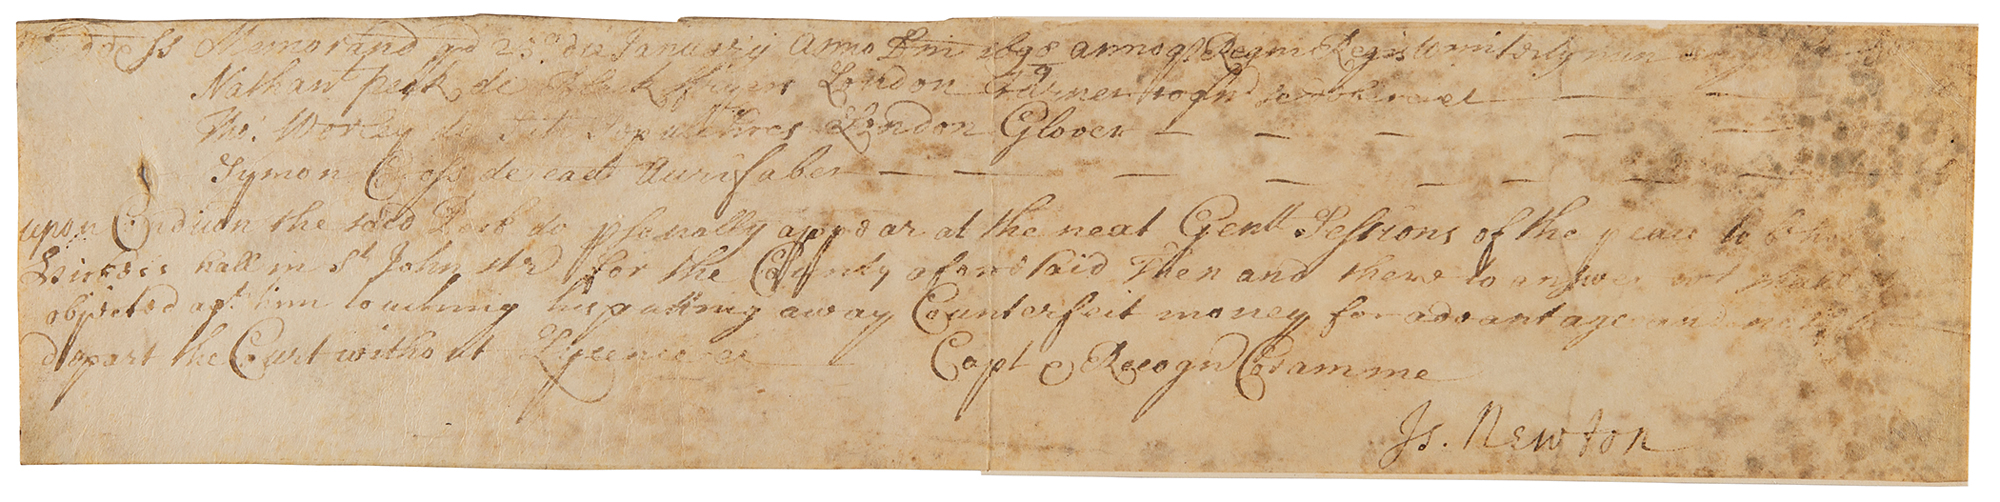 ss Memorand qd 23º die January Anno Dni 1698/9 annoqe Regni Regis
Nathan Peck de Black fryers London Turner
Tho: Worley de London Glover
Symon Cross de ead Aurifaber
upon Condicon the said Peck do psonally appear at the next Genll Sessions of the peace to be
Hickses hall in St John str for the County aforesaid Then and there to answer
objected agt him touching his putting away Counterfeit money for advantage and
depart the Court without Lycence &c Capt & Recogn Coram me
Is. Newton